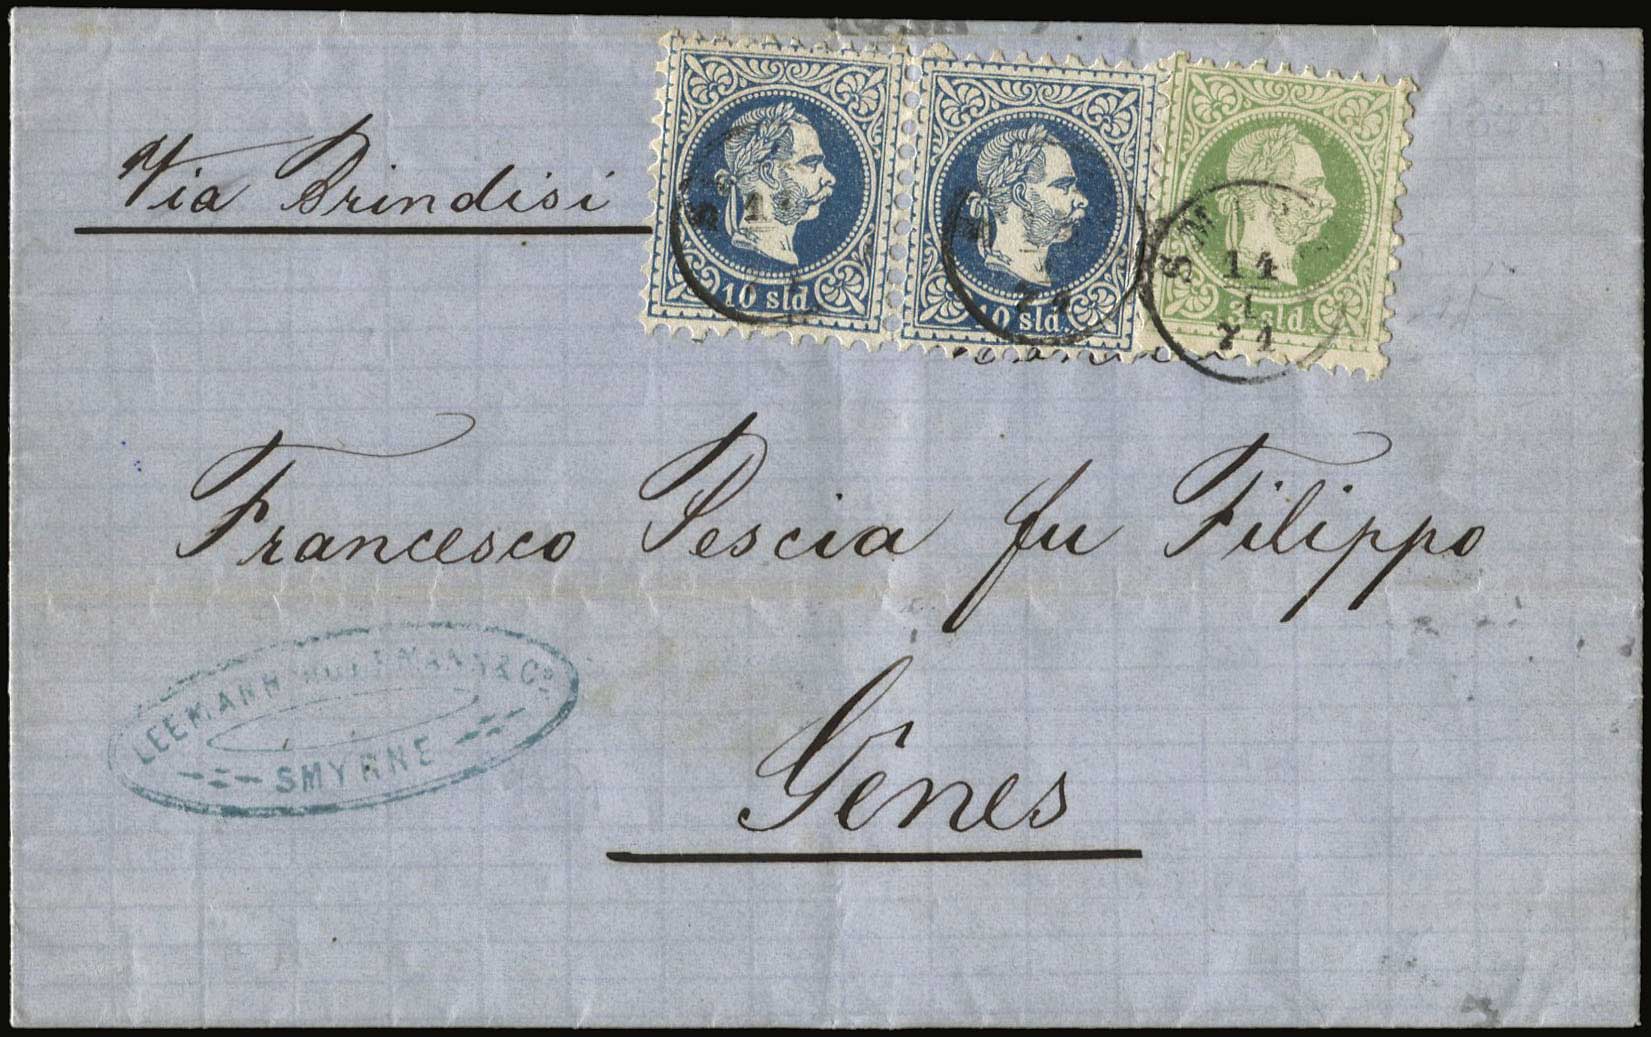 Via Brindisi
10 sld
10 sld.
3 sld.
SM
14
1
71
71
Francesco Pescia fu Filippo
LEEMANN & Cº
SMYRNE
Gênes